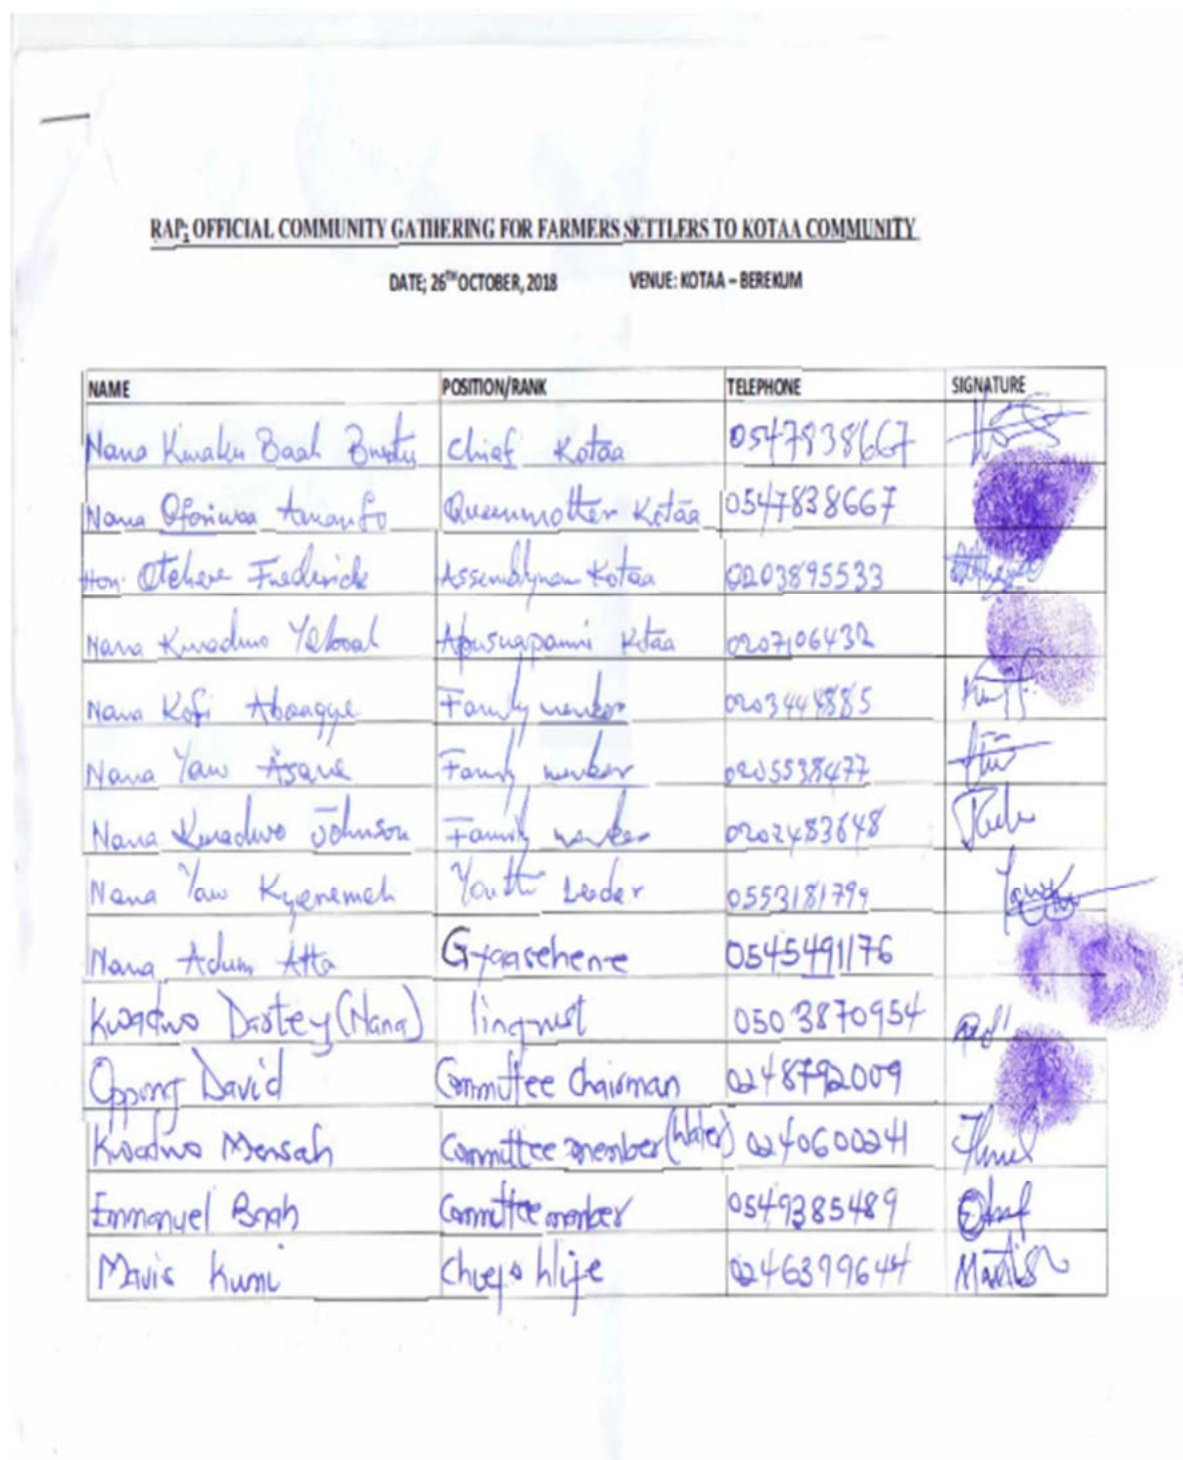 RAP; OFFICIAL COMMUNITY GATHERING FOR FARMERS SETTLERS TO KOTAA COMMUNITY
DATE; 26TH OCTOBER, 2018 VENUE: KOTAA – BEREKUM
NAME POSITION/RANK TELEPHONE SIGNATURE
Nana Kwaku Baah Chief Kotaa 0547838667
Nana Oforiwaa Amanfo Queenmother Kotaa 0547838667
Hon. Otchere Frederick Assemblyman Kotaa 0203895533
Nana Kwadwo Yeboah Abusuapanni Kotaa 0207106432
Nana Kofi Aboagye Family member 0203444885
Nana Yaw Asare Family member 0205538477
Nana Kwadwo Johnson Family member 0202483648
Nana Yaw Kyenemah Youth Leader 0553181799
Nana Adum Atta Gyaasehene 0545491176
Kwadwo Dastey (Nana) linquist 0503870954
Oppong David Committee Chairman 0248792009
Kwadwo Mensah Committee member (Water) 0240600241
Emmanuel Baah Committee member 0549385489
Mavis Kumi 0246399644